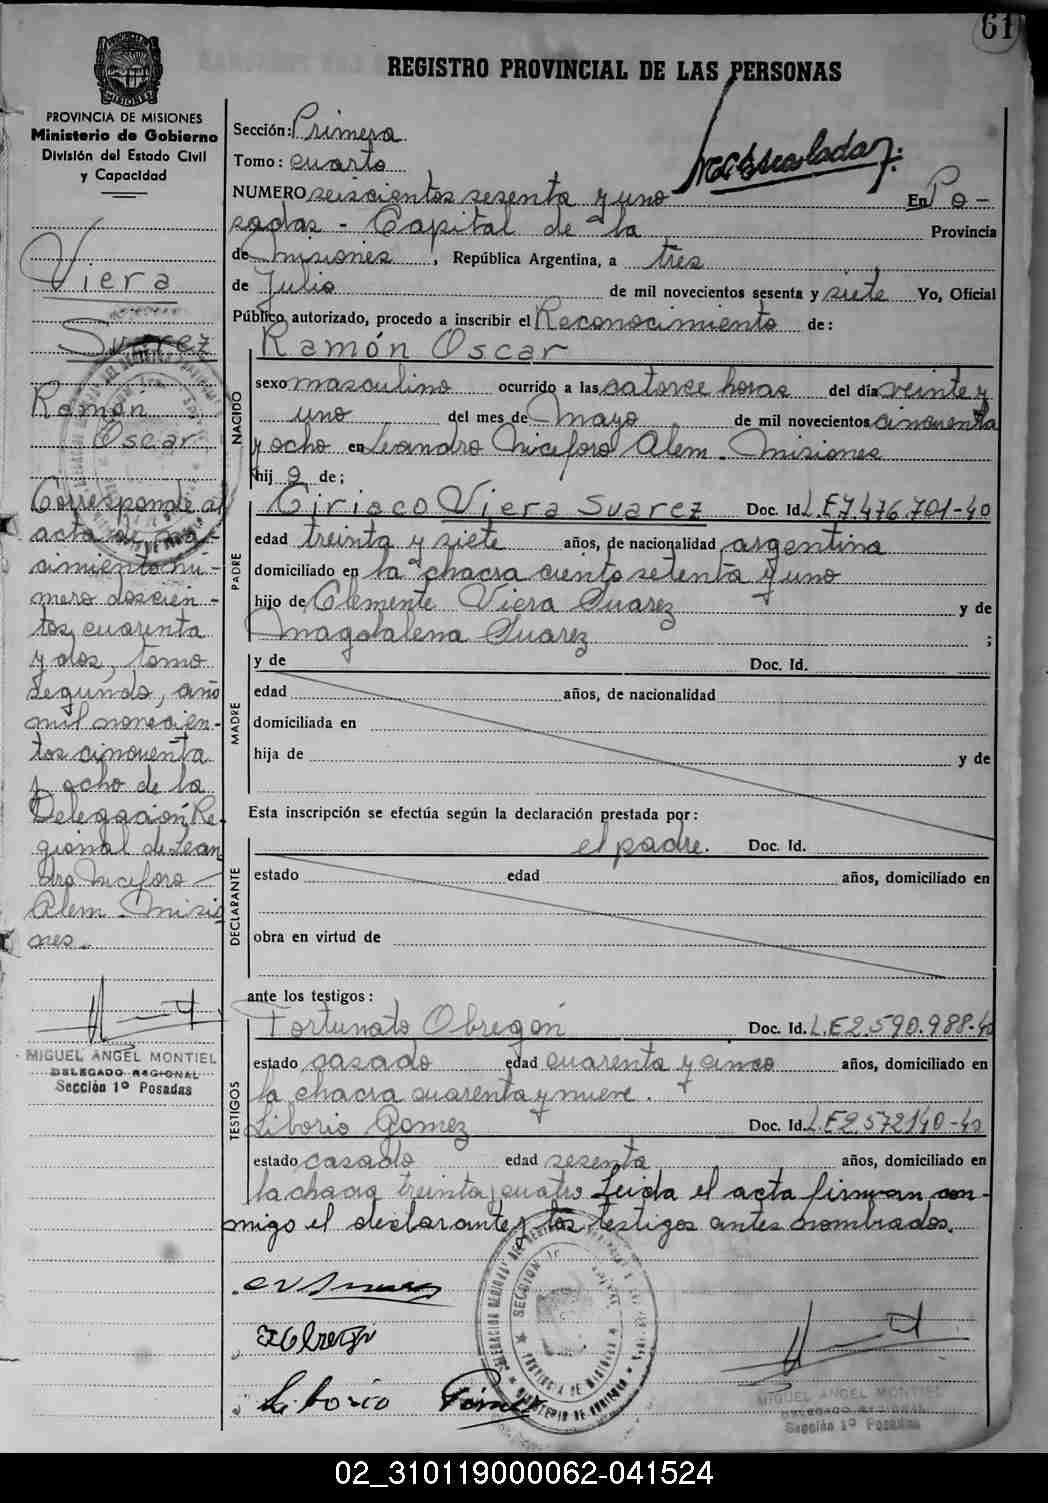 61
REGISTRO PROVINCIAL DE LAS PERSONAS
PROVINCIA DE MISIONES
Ministerio de Gobierno
División del Estado Civil
y Capacidad
Viera
Suarez
Ramón
Oscar
Corresponde al
acta de na-
cimiento nú-
mero doscien-
tos cuarenta
y dos, tomo
segundo, año
mil novecien-
tos cincuenta
y ocho de la
Delegación Re-
gional de Lean
dro Niceforo
Alem - Misio
nes.-
MIGUEL ANGEL MONTIEL
DELEGADO REGIONAL
Sección 1º Posadas
Sección: Primera
Tomo: cuarto
NUMERO seiscientos sesenta y uno En Po-
sadas - Capital de la Provincia
de Misiones, República Argentina, a tres
de Julio de mil novecientos sesenta y siete Yo, Oficial
Público autorizado, procedo a inscribir el Reconocimiento de:
Ramón Oscar
NACIDO
sexo masculino ocurrido a las catorce horas del día veinte y
uno del mes de Mayo de mil novecientos cincuenta
y ocho en Leandro Niceforo Alem - Misiones
hijo de;
PADRE
Ciriaco Viera Suarez Doc. Id. L.E 7.476.701-40
edad treinta y siete años, de nacionalidad argentina
domiciliado en la chacra ciento setenta y uno
hijo de Clemente Viera Suarez y de
Magdalena Suarez ;
MADRE
y de Doc. Id.
edad años, de nacionalidad
domiciliada en
hija de y de
Esta inscripción se efectúa según la declaración prestada por:
DECLARANTE
el padre. Doc. Id.
estado edad años, domiciliado en
obra en virtud de
ante los testigos:
TESTIGOS
Fortunato Obregón Doc. Id. L.E 2.590.988-40
estado casado edad cuarenta y cinco años, domiciliado en
la chacra cuarenta y nueve.
Liborio Gomez Doc. Id. L.E 2.572140-40
estado casado edad sesenta años, domiciliado en
la chacra treinta y cuatro Leida el acta firman con-
migo el declarante y los testigos antes nombrados.
Liborio Gómez
MIGUEL ANGEL MONTIEL
DELEGADO REGIONAL
Sección 1º Posadas
02_310119000062-041524